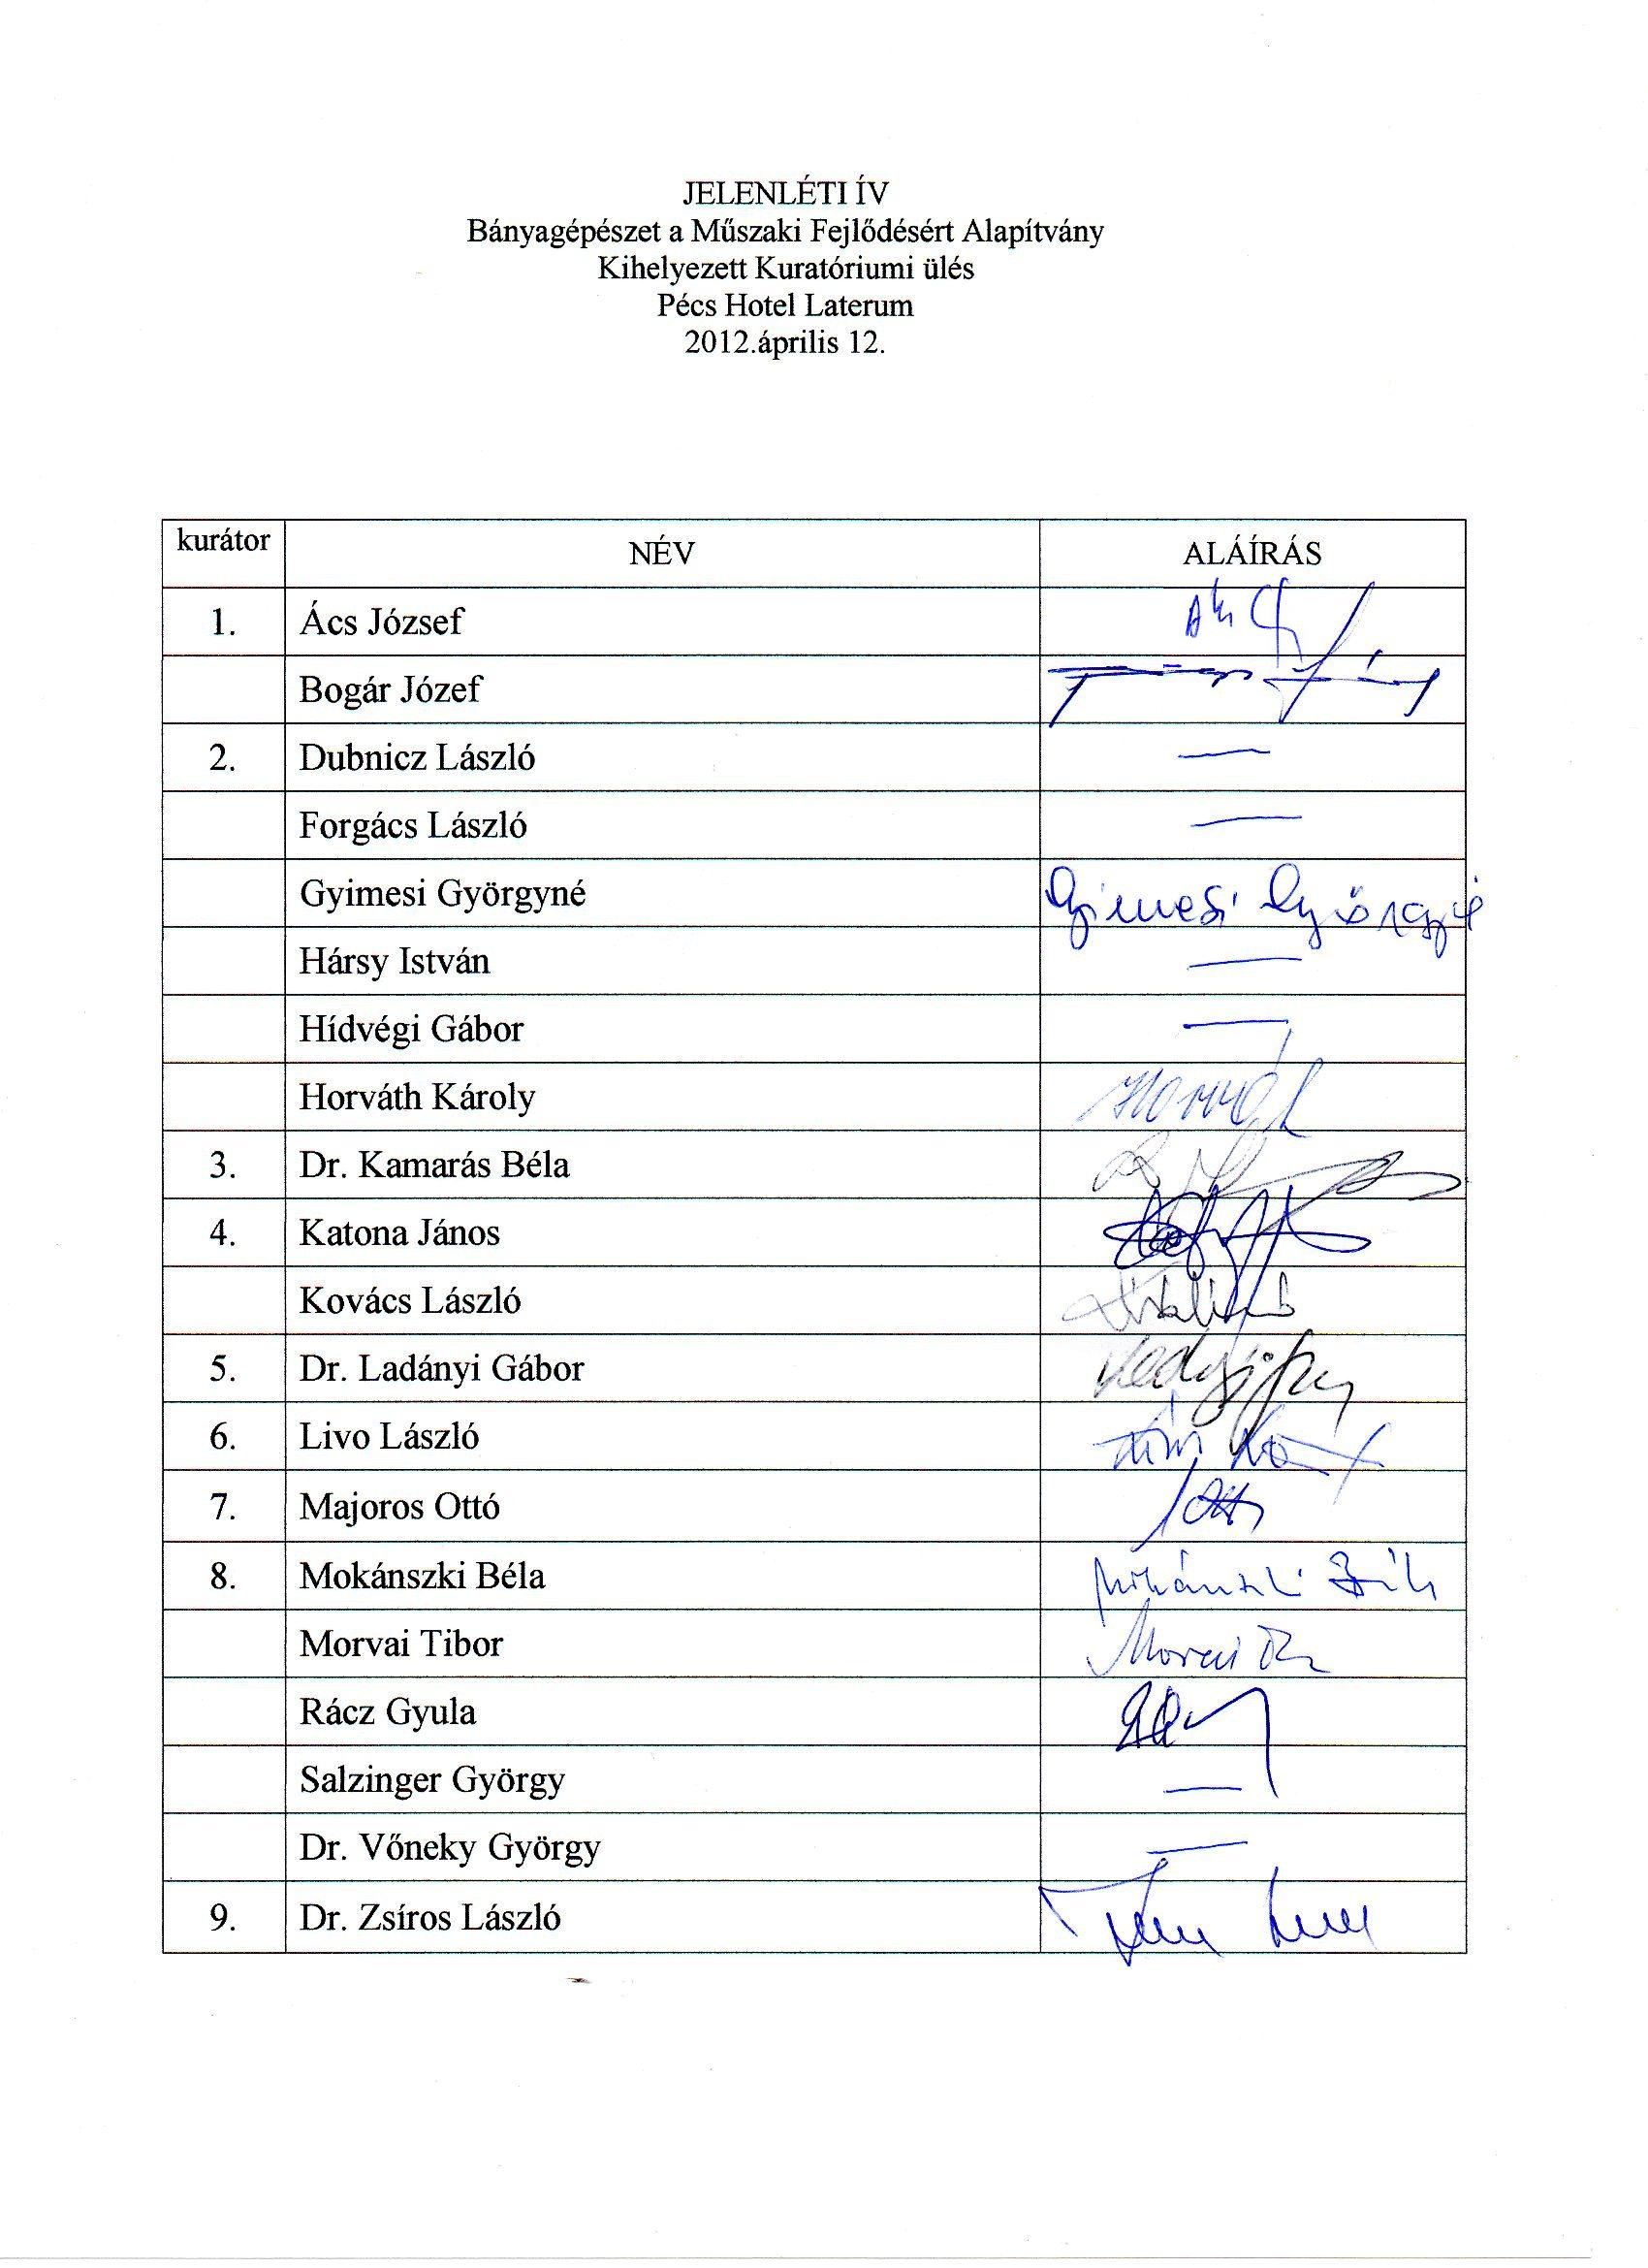 JELENLÉTI ÍV
Bányagépészet a Műszaki Fejlődésért Alapítvány
Kihelyezett Kuratóriumi ülés
Pécs Hotel Laterum
2012.április 12.
kurátor NÉV ALÁÍRÁS
1. Ács József
Bogár Józef
2. Dubnicz László —
Forgács László —
Gyimesi Györgyné Gyimesi Györgyné
Hársy István —
Hídvégi Gábor —
Horváth Károly Horváth
3. Dr. Kamarás Béla
4. Katona János
Kovács László
5. Dr. Ladányi Gábor
6. Livo László
7. Majoros Ottó
8. Mokánszki Béla Mokánszki Béla
Morvai Tibor Morvai
Rácz Gyula
Salzinger György —
Dr. Vőneky György —
9. Dr. Zsíros László